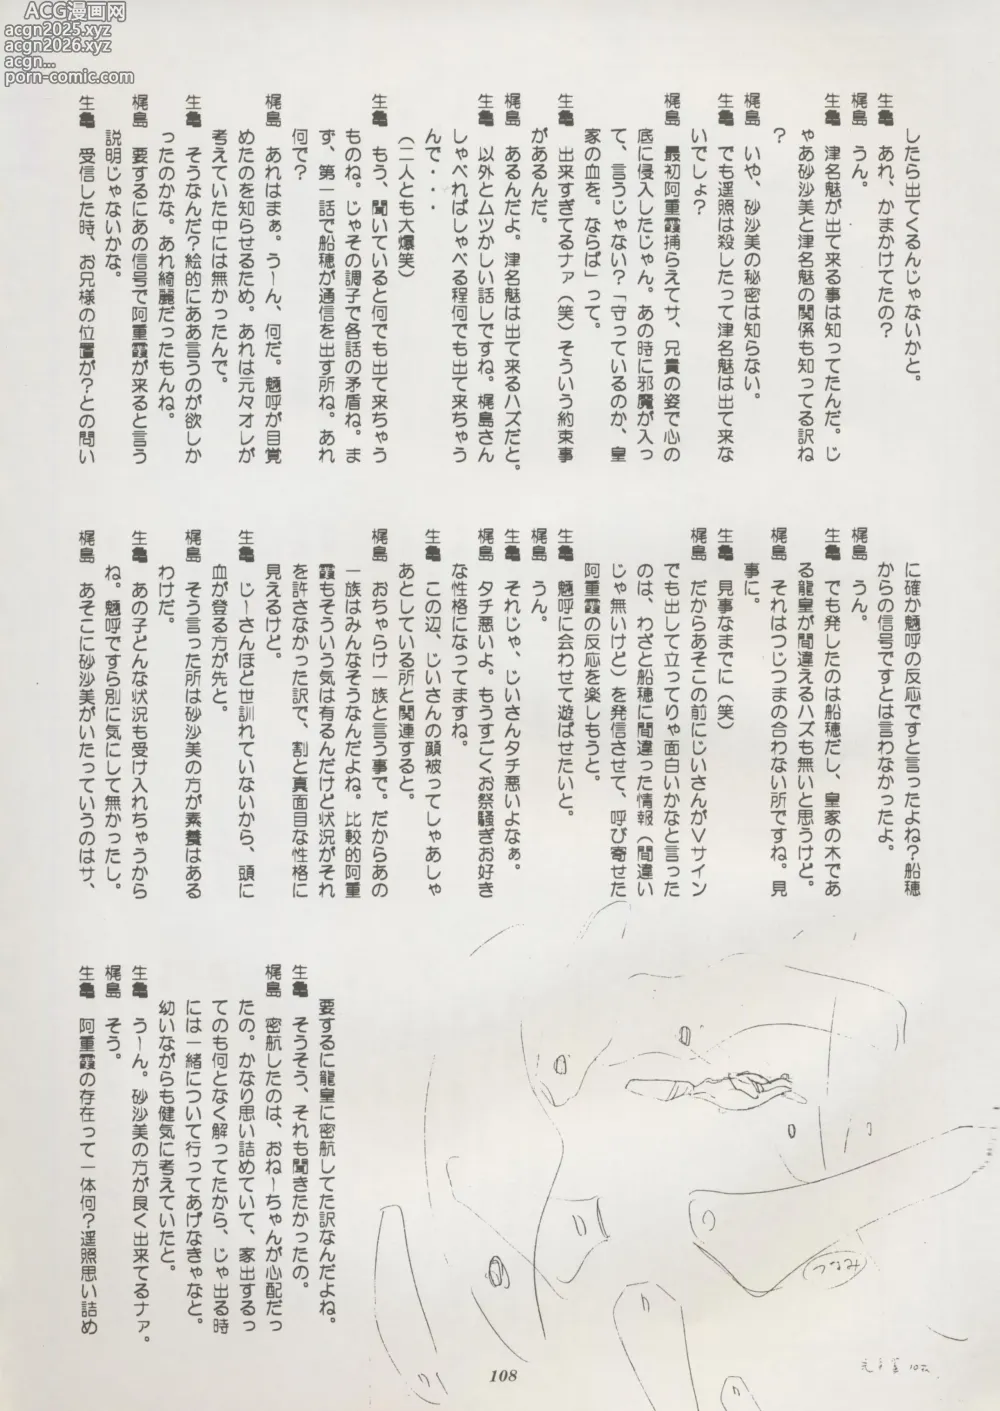 ACG漫画网
acgn2025.xyz
acgn2026.xyz
acgn...
porn-comic.com
したら出てくるんじゃないかと。
生亀　あれ、かまかけてたの？
梶島　うん。
生亀　津名魅が出て来る事は知ってたんだ。じ
ゃあ砂沙美と津名魅の関係も知ってる訳ね
？
梶島　いや、砂沙美の秘密は知らない。
生亀　でも遥照は殺したって津名魅は出て来な
いでしょ？
梶島　最初阿重霞捕らえてサ、兄貴の姿で心の
底に侵入したじゃん。あの時に邪魔が入っ
て、言うじゃない？「守っているのか、皇
家の血を。ならば」って。
生亀　出来すぎてるナァ（笑）そういう約束事
があるんだ。
梶島　あるんだよ。津名魅は出て来るハズだと。
生亀　以外とムツかしい話しですね。梶島さん
しゃべればしゃべる程何でも出て来ちゃう
んで・・・
（二人とも大爆笑）
生亀　もう、聞いていると何でも出て来ちゃう
ものね。じゃその調子で各話の矛盾ね。ま
ず、第一話で船穂が通信を出す所ね。あれ
何で？
梶島　あれはまぁ。う～ん、何だ。魎呼が目覚
めたのを知らせるため。あれは元々オレが
考えていた中には無かったんで。
生亀　そうなんだ？絵的にああ言うのが欲しか
ったのかな。あれ綺麗だったもんね。
梶島　要するにあの信号で阿重霞が来ると言う
説明じゃないかな。
生亀　受信した時、お兄様の位置が？との問い
に確か魎呼の反応ですと言ったよね？船穂
からの信号ですとは言わなかったよ。
梶島　うん。
生亀　でも発したのは船穂だし、皇家の木であ
る龍皇が間違えるハズも無いと思うけど。
梶島　それはつじつまの合わない所ですね。見
事に。
生亀　見事なまでに（笑）
梶島　だからあそこの前にじいさんがＶサイン
でも出して立ってりゃ面白いかなと言った
のは、わざと船穂に間違った情報（間違い
じゃ無いけど）を発信させて、呼び寄せた
阿重霞の反応を楽しもうと。
生亀　魎呼に会わせて遊ばせたいと。
梶島　うん。
生亀　それじゃ、じいさんタチ悪いよなぁ。
梶島　タチ悪いよ。もうすごくお祭騒ぎお好き
な性格になってますね。
生亀　この辺、じいさんの顔被ってしゃあしゃ
あとしている所と関連すると。
梶島　おちゃらけ一族と言う事で。だからあの
一族はみんなそうなんだよね。比較的阿重
霞もそういう気は有るんだけど状況がそれ
を許さなかった訳で、割と真面目な性格に
見えるけど。
生亀　じ～さんほど世訓れていないから、頭に
血が登る方が先と。
梶島　そう言った所は砂沙美の方が素養はある
わけだ。
生亀　あの子どんな状況も受け入れちゃうから
ね。魎呼ですら別に気にして無かったし。
梶島　あそこに砂沙美がいたっていうのはサ、
要するに龍皇に密航してた訳なんだよね。
生亀　そうそう、それも聞きたかったの。
梶島　密航したのは、おね～ちゃんが心配だっ
たの。かなり思い詰めていて、家出するっ
てのも何となく解ってたから、じゃ出る時
には一緒について行ってあげなきゃなと。
幼いながらも健気に考えていたと。
生亀　う～ん。砂沙美の方が良く出来てるナァ。
梶島　そう。
生亀　阿重霞の存在って一体何？遥照思い詰め
つなみ
108